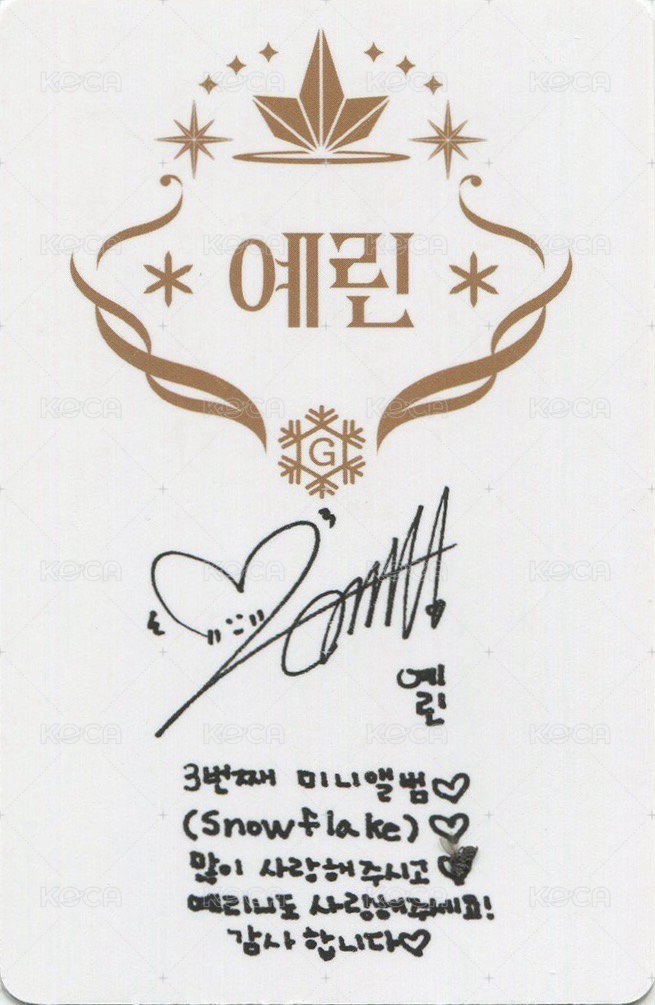 예린
G
예린
3번째 미니앨범♡
(Snowflake)♡
많이 사랑해주시고♥
예리니도 사랑해주세요!
감사합니다♡
KOCA